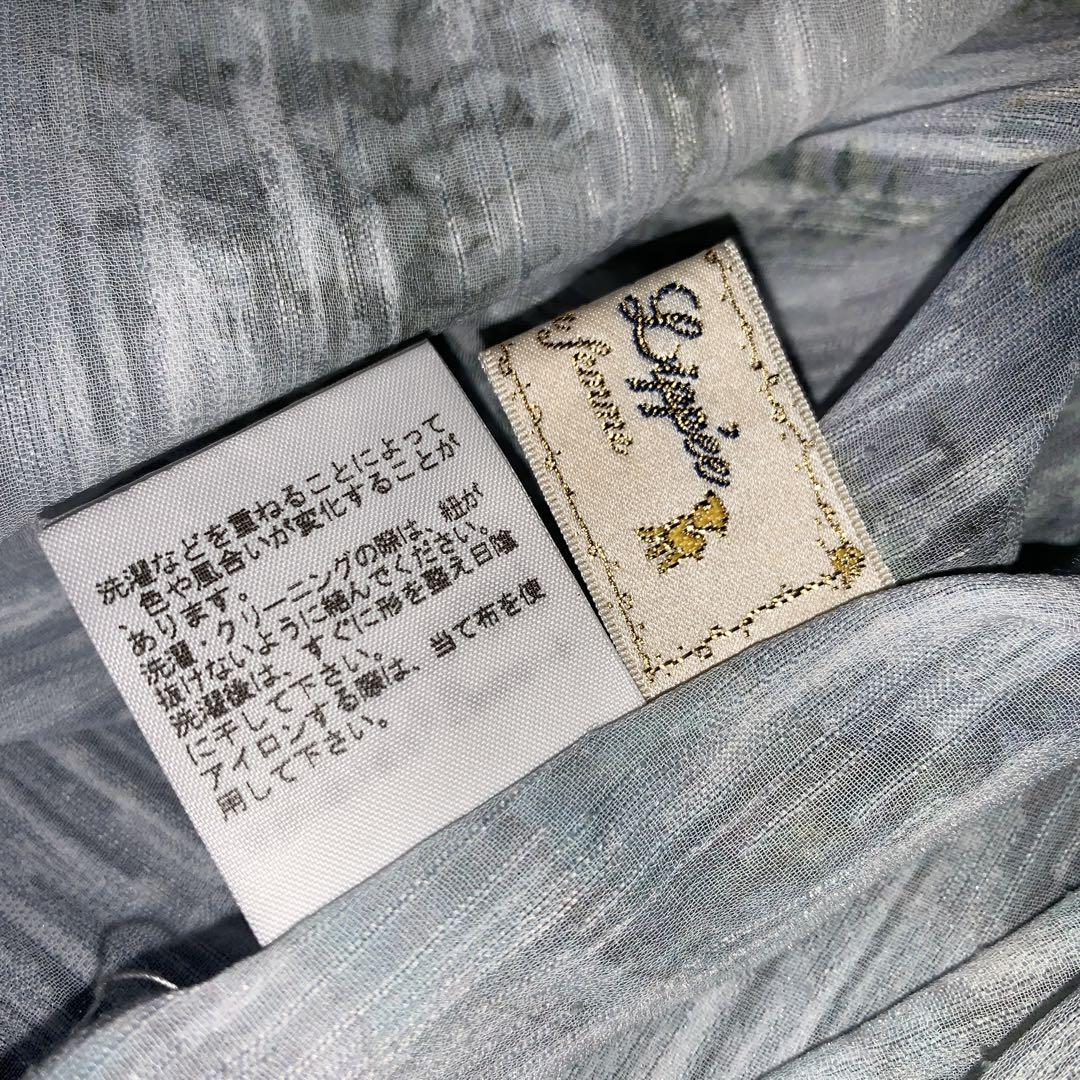 洗濯などを重ねることによって
、色や風合いが変化することが
あります。
洗濯・クリーニングの際は、紐が
抜けないように結んでください。
洗濯後は、すぐに形を整え日陰
に干して下さい。
アイロンする際は、当て布を使
用して下さい。